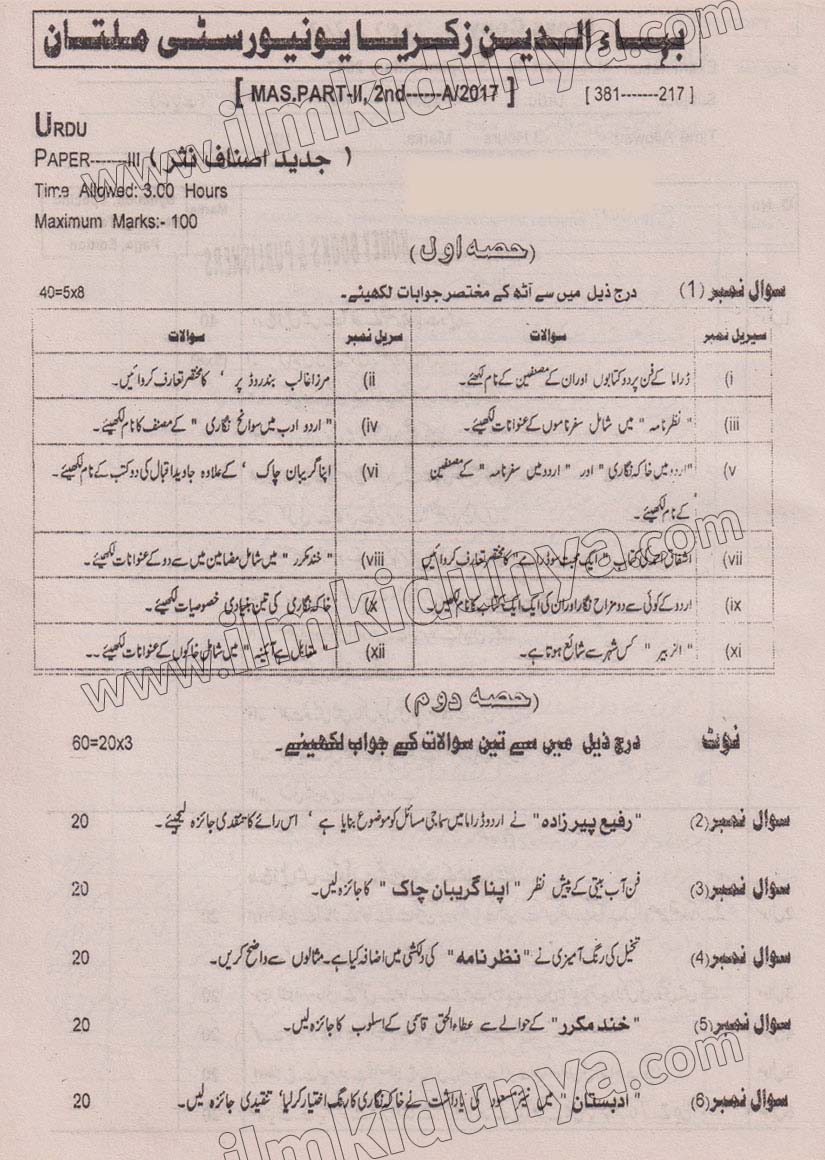 بہاء الدین زکریا یونیورسٹی ملتان
[ MAS.PART-II, 2nd------A/2017 ] [ 381-------217 ]
URDU
PAPER-------III ( جدید اصناف نثر )
Time Allowed: 3.00 Hours
Maximum Marks:- 100
(حصہ اول)
سوال نمبر (1) درج ذیل میں سے آٹھ کے مختصر جوابات لکھیئے۔ 40=5x8
سیریل نمبر سوالات سریل نمبر سوالات
(i ڈراما کے فن پر دو کتابوں اور ان کے مصنفین کے نام لکھئے۔ (ii مرزا غالب بندر روڈ پر ' کا مختصر تعارف کروائیں۔
(iii "نظرنامہ" میں شامل سفرناموں کے عنوانات لکھیئے۔ (iv "اردو ادب میں سوانح نگاری" کے مصنف کا نام لکھیئے۔
(v "اردو میں خاکہ نگاری" اور "اردو میں سفرنامہ" کے مصنفین (vi اپنا گریبان چاک ' کے علاوہ جاوید اقبال کی دو کتب کے نام لکھیئے۔
کے نام لکھیئے۔
(vii اشفاق احمد کی کتاب "ایک محبت سو ڈرامے" کا مختصر تعارف کروائیں (viii "خند مکرر" میں شامل مضامین میں سے دو کے عنوانات لکھیئے۔
(ix اردو کے کوئی سے دو مزاح نگار اور ان کی ایک ایک کتاب کا نام لکھیں۔ (x خاکہ نگاری کی تین بنیادی خصوصیات لکھیئے۔
(xi "الزبیر" کس شہر سے شائع ہوتا ہے۔ (xii "مقابل ہے آئینہ" میں شامل خاکوں کے عنوانات لکھیئے۔۔
(حصہ دوم)
نوٹ درج ذیل میں سے تین سوالات کے جواب لکھیئے۔ 60=20x3
سوال نمبر (2) "رفیع پیرزادہ" نے اردو ڈراما میں سماجی مسائل کو موضوع بنایا ہے ' اس رائے کا تنقدی جائزہ لیجیئے۔ 20
سوال نمبر (3) فن آپ بیتی کے پیش نظر "اپنا گریبان چاک" کا جائزہ لیں۔ 20
سوال نمبر (4) تخیل کی رنگ آمیزی نے "نظرنامہ" کی دلکشی میں اضافہ کیا ہے۔ مثالوں سے واضح کریں۔ 20
سوال نمبر (5) "خند مکرر" کے حوالے سے عطاء الحق قاسمی کے اسلوب کا جائزہ لیں۔ 20
سوال نمبر (6) "ادبستان" میں نیئر مسعود کی یادداشت نے خاکہ نگاری کا رنگ اختیار کر لیا' تنقیدی جائزہ لیں۔ 20
www.ilmkidunya.com
www.ilmkidunya.com
www.ilmkidunya.com
ilmkidunya.com